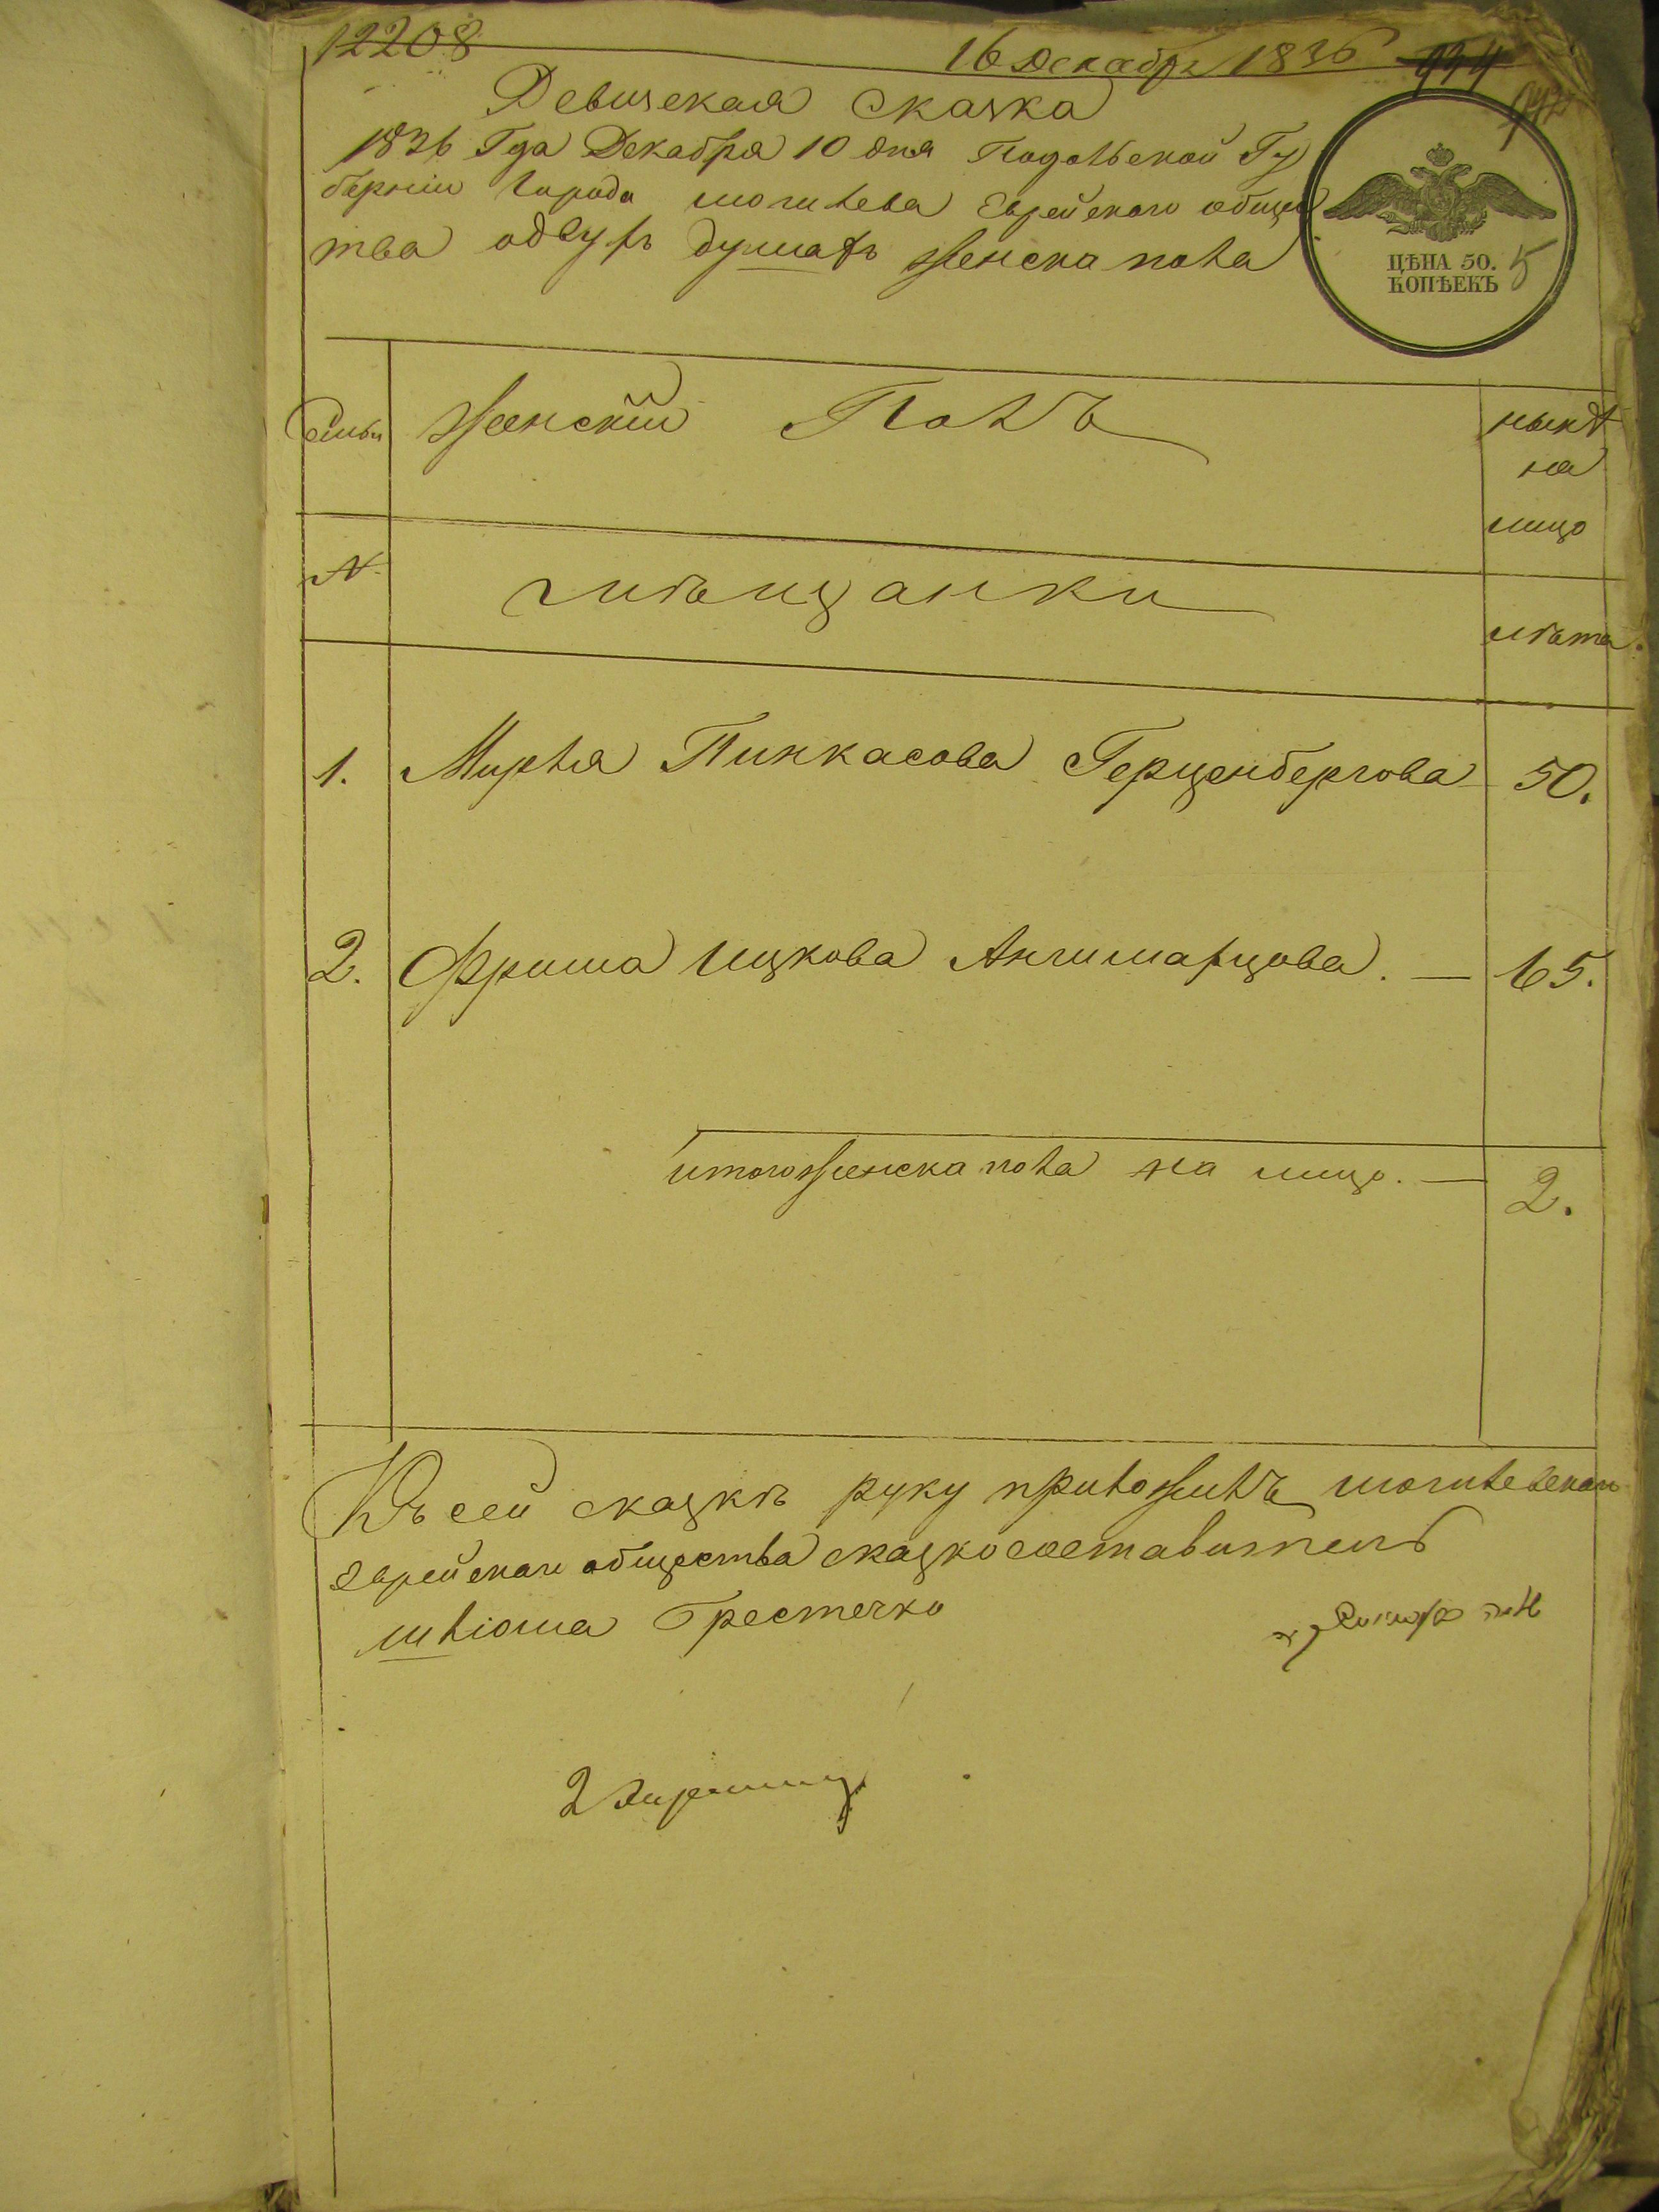 12208
16 декабря 1836
Ревизская Сказка
1836 Года Декабря 10 дня Подольской Гу
берніи города могилева Еврейскаго общес
тва одвухъ душахъ женска пола
ЦѢНА 50.
КОПѢЕКЪ
5
семьи
женскій Полъ
нынѣ
на
лицо
№
мѣщанки
лѣта.
1. Мирля Пинкасова Герценбергова 50.
2. Фрима Ицкова Анчишарцова. — 65.
итого женска пола на лицо. — 2.
Къ сей сказкѣ руку приложилъ могилевскаго
Еврейскаго общества сказкосоставитель
шліома Грестечко